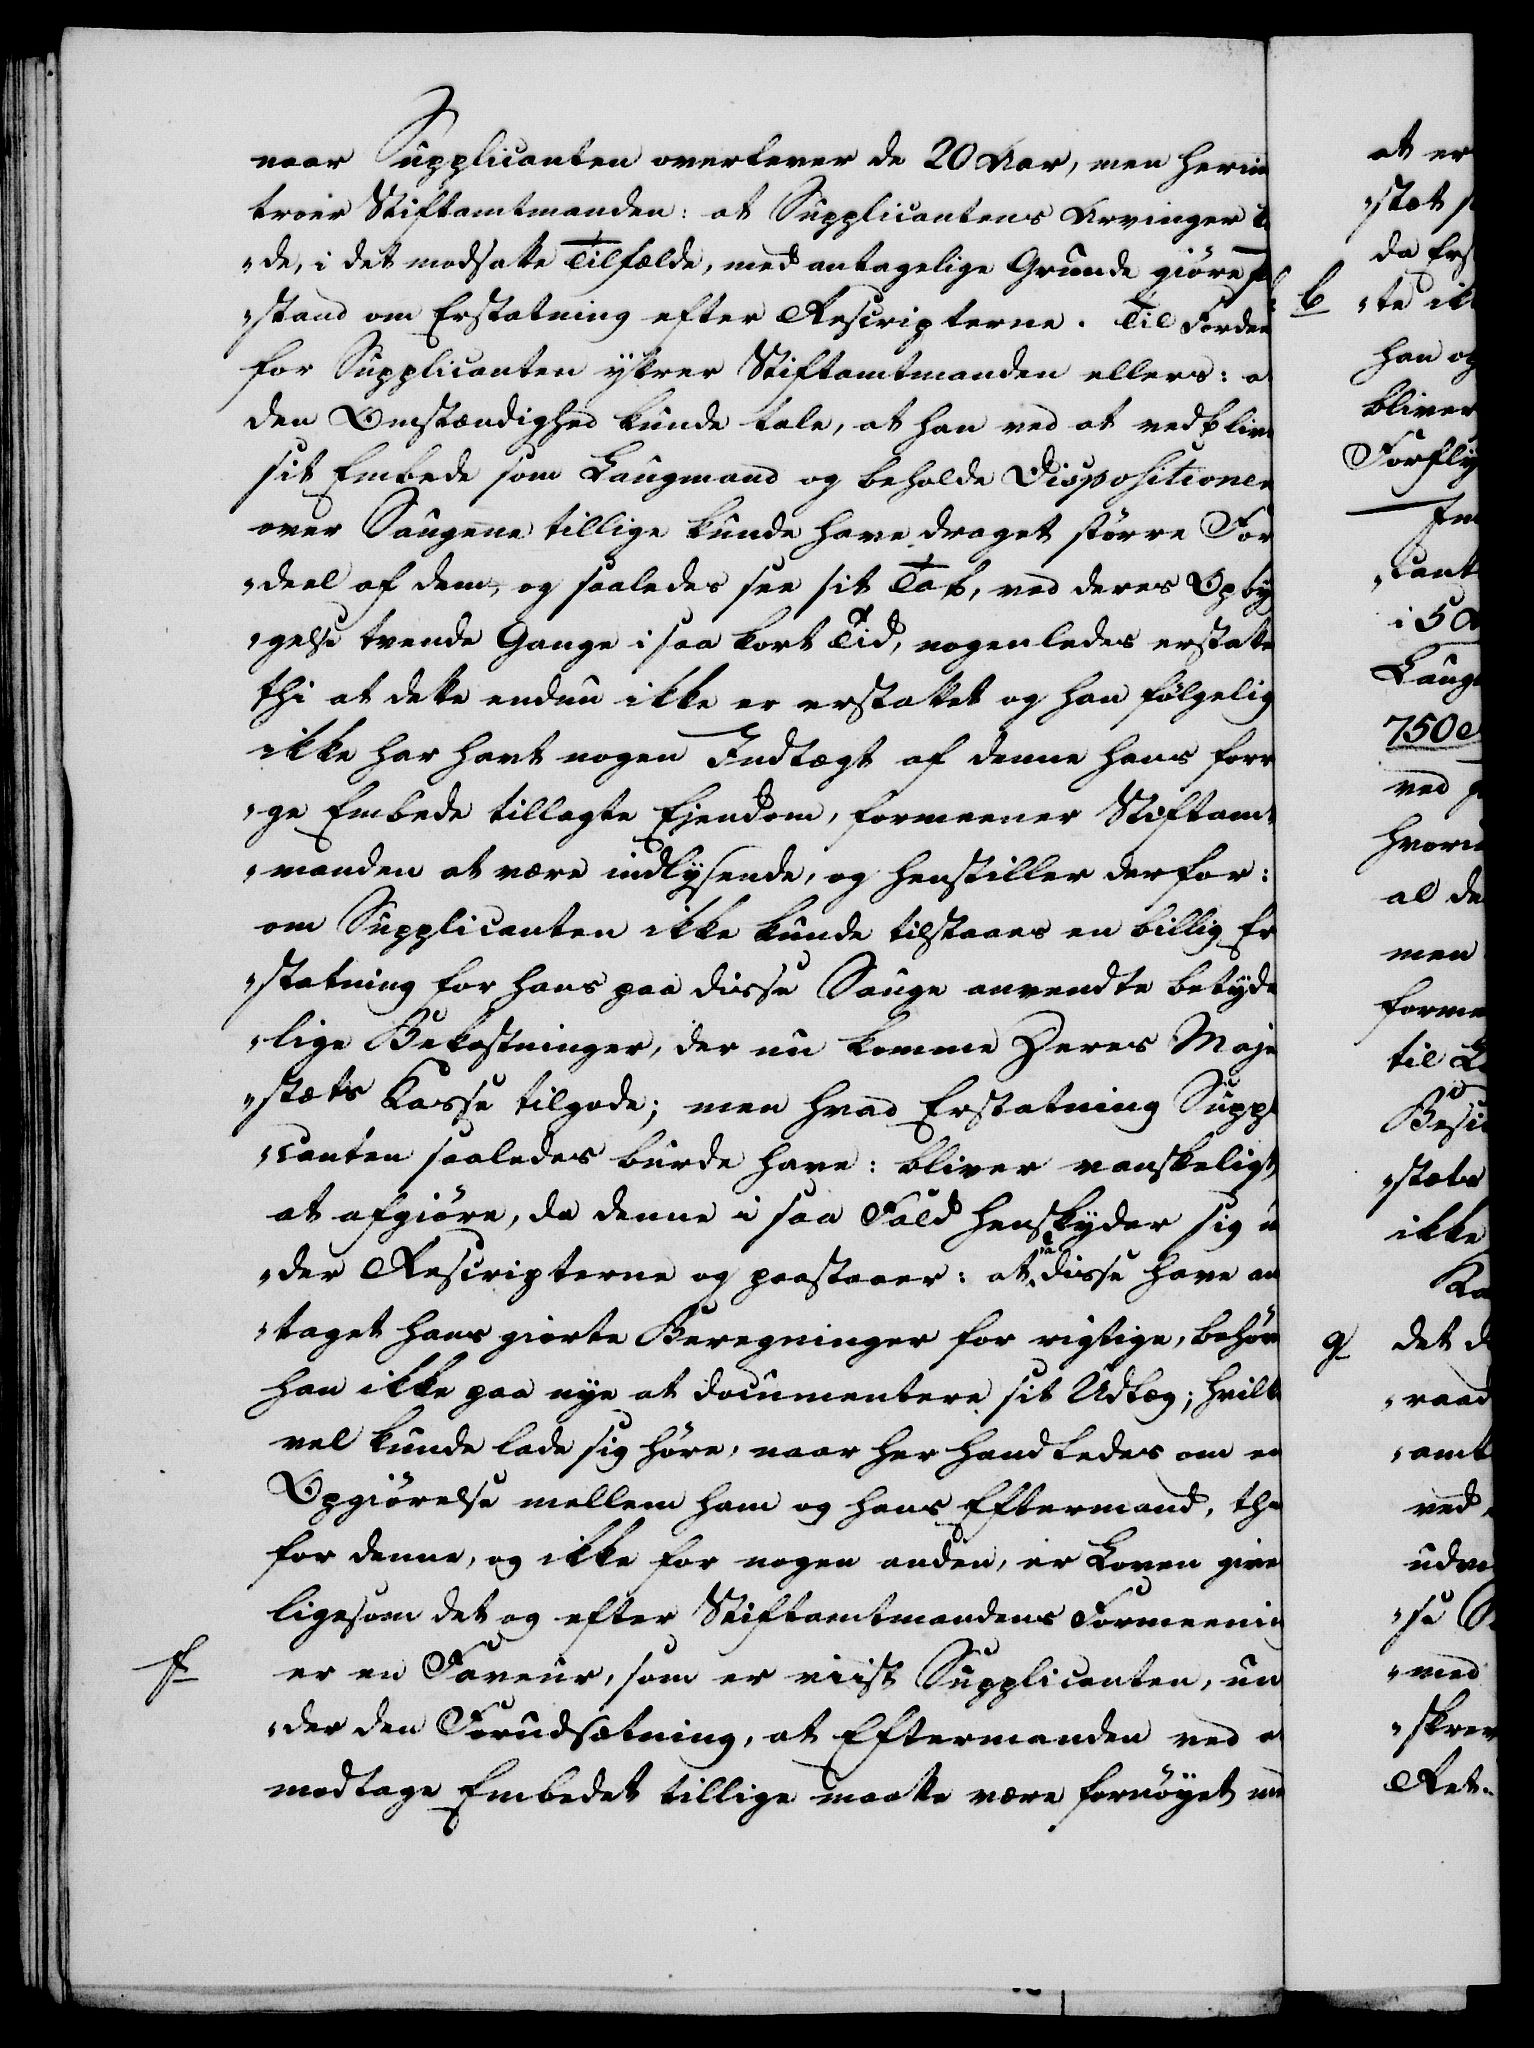 naar Supplicanten overlever de 20 Aar, men herim
troer Stiftamtmanden: at Supplicantens Arvinger
"de, i det modsatte Tilfælde, med antagelige Grunde giøre
"stand om Erstatning efter Rescripterne. Til Fordee
for Supplicanten yttrer Stiftamtmanden ellers: a
den Omstændighed kunde tale, at han ved at vedblive
sit Embede som Laugmand og beholde Dispositionen
over Saugene tillige kunde have draget større For
"deel af dem, og saaledes see sit Tab, ved deres Opby
"gelse tvende Gange i saa kort Tid, nogenledes erstatte
thi at dette endnu ikke er erstattet og han følgelig
ikke har havt nogen Indtægt af denne hans forr
"ge Embede tillagte Ejendom, formeener Stiftamt
"manden at være indlysende, og henstiller derfor:
om Supplicanten ikke kunde tilstaaes en billig Er
"statning for hans paa disse Sauge anvendte betyde
"lige Bekostninger, der nu komme Deres Maje
"stæts Kasse tilgode; men hvad Erstatning Suppl
"canten saaledes burde have: bliver vanskeligt
at afgiøre, da denne i saa Fald henskyder sig u
"der Rescripterne og paastaaer: at, da disse have an
"taget hans giorte Beregninger for rigtige, behøve
han ikke paa nye at documentere sit Udlæg; hvilk
vel kunde lade sig høre, naar her handledes om en
Opgiørelse mellem ham og hans Eftermand, thi
for denne, og ikke for nogen anden, er Loven give
ligesom det og efter Stiftamtmandens Formeening
f er en Faveur, som er viist Supplicanten, un
"der den Forudsætning, at Eftermanden ved a
modtage Embedet tillige maatte være fornøyet me
at er
"stat
da Ers
b "te ik
han og
bliver
Forfly
"cant
i 5
Laug
750
ved
hvor
al de
men
forme
til
"stæts
ikke
g det d
"raad
"amt
ved
udv
"se
"med
"skrev
Ret.